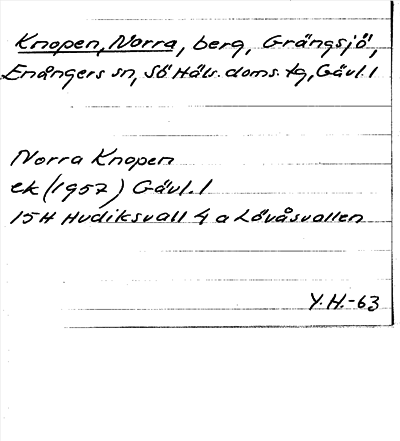 Knopen, Norra, berg, Grängsjö,
Enångers sn, Sö Häls. doms. tg, Gävl. l
Norra Knopen
ek (1957) Gävl. l
15H Hudiksvall 4 a Lövåsvallen
Y. H. -63